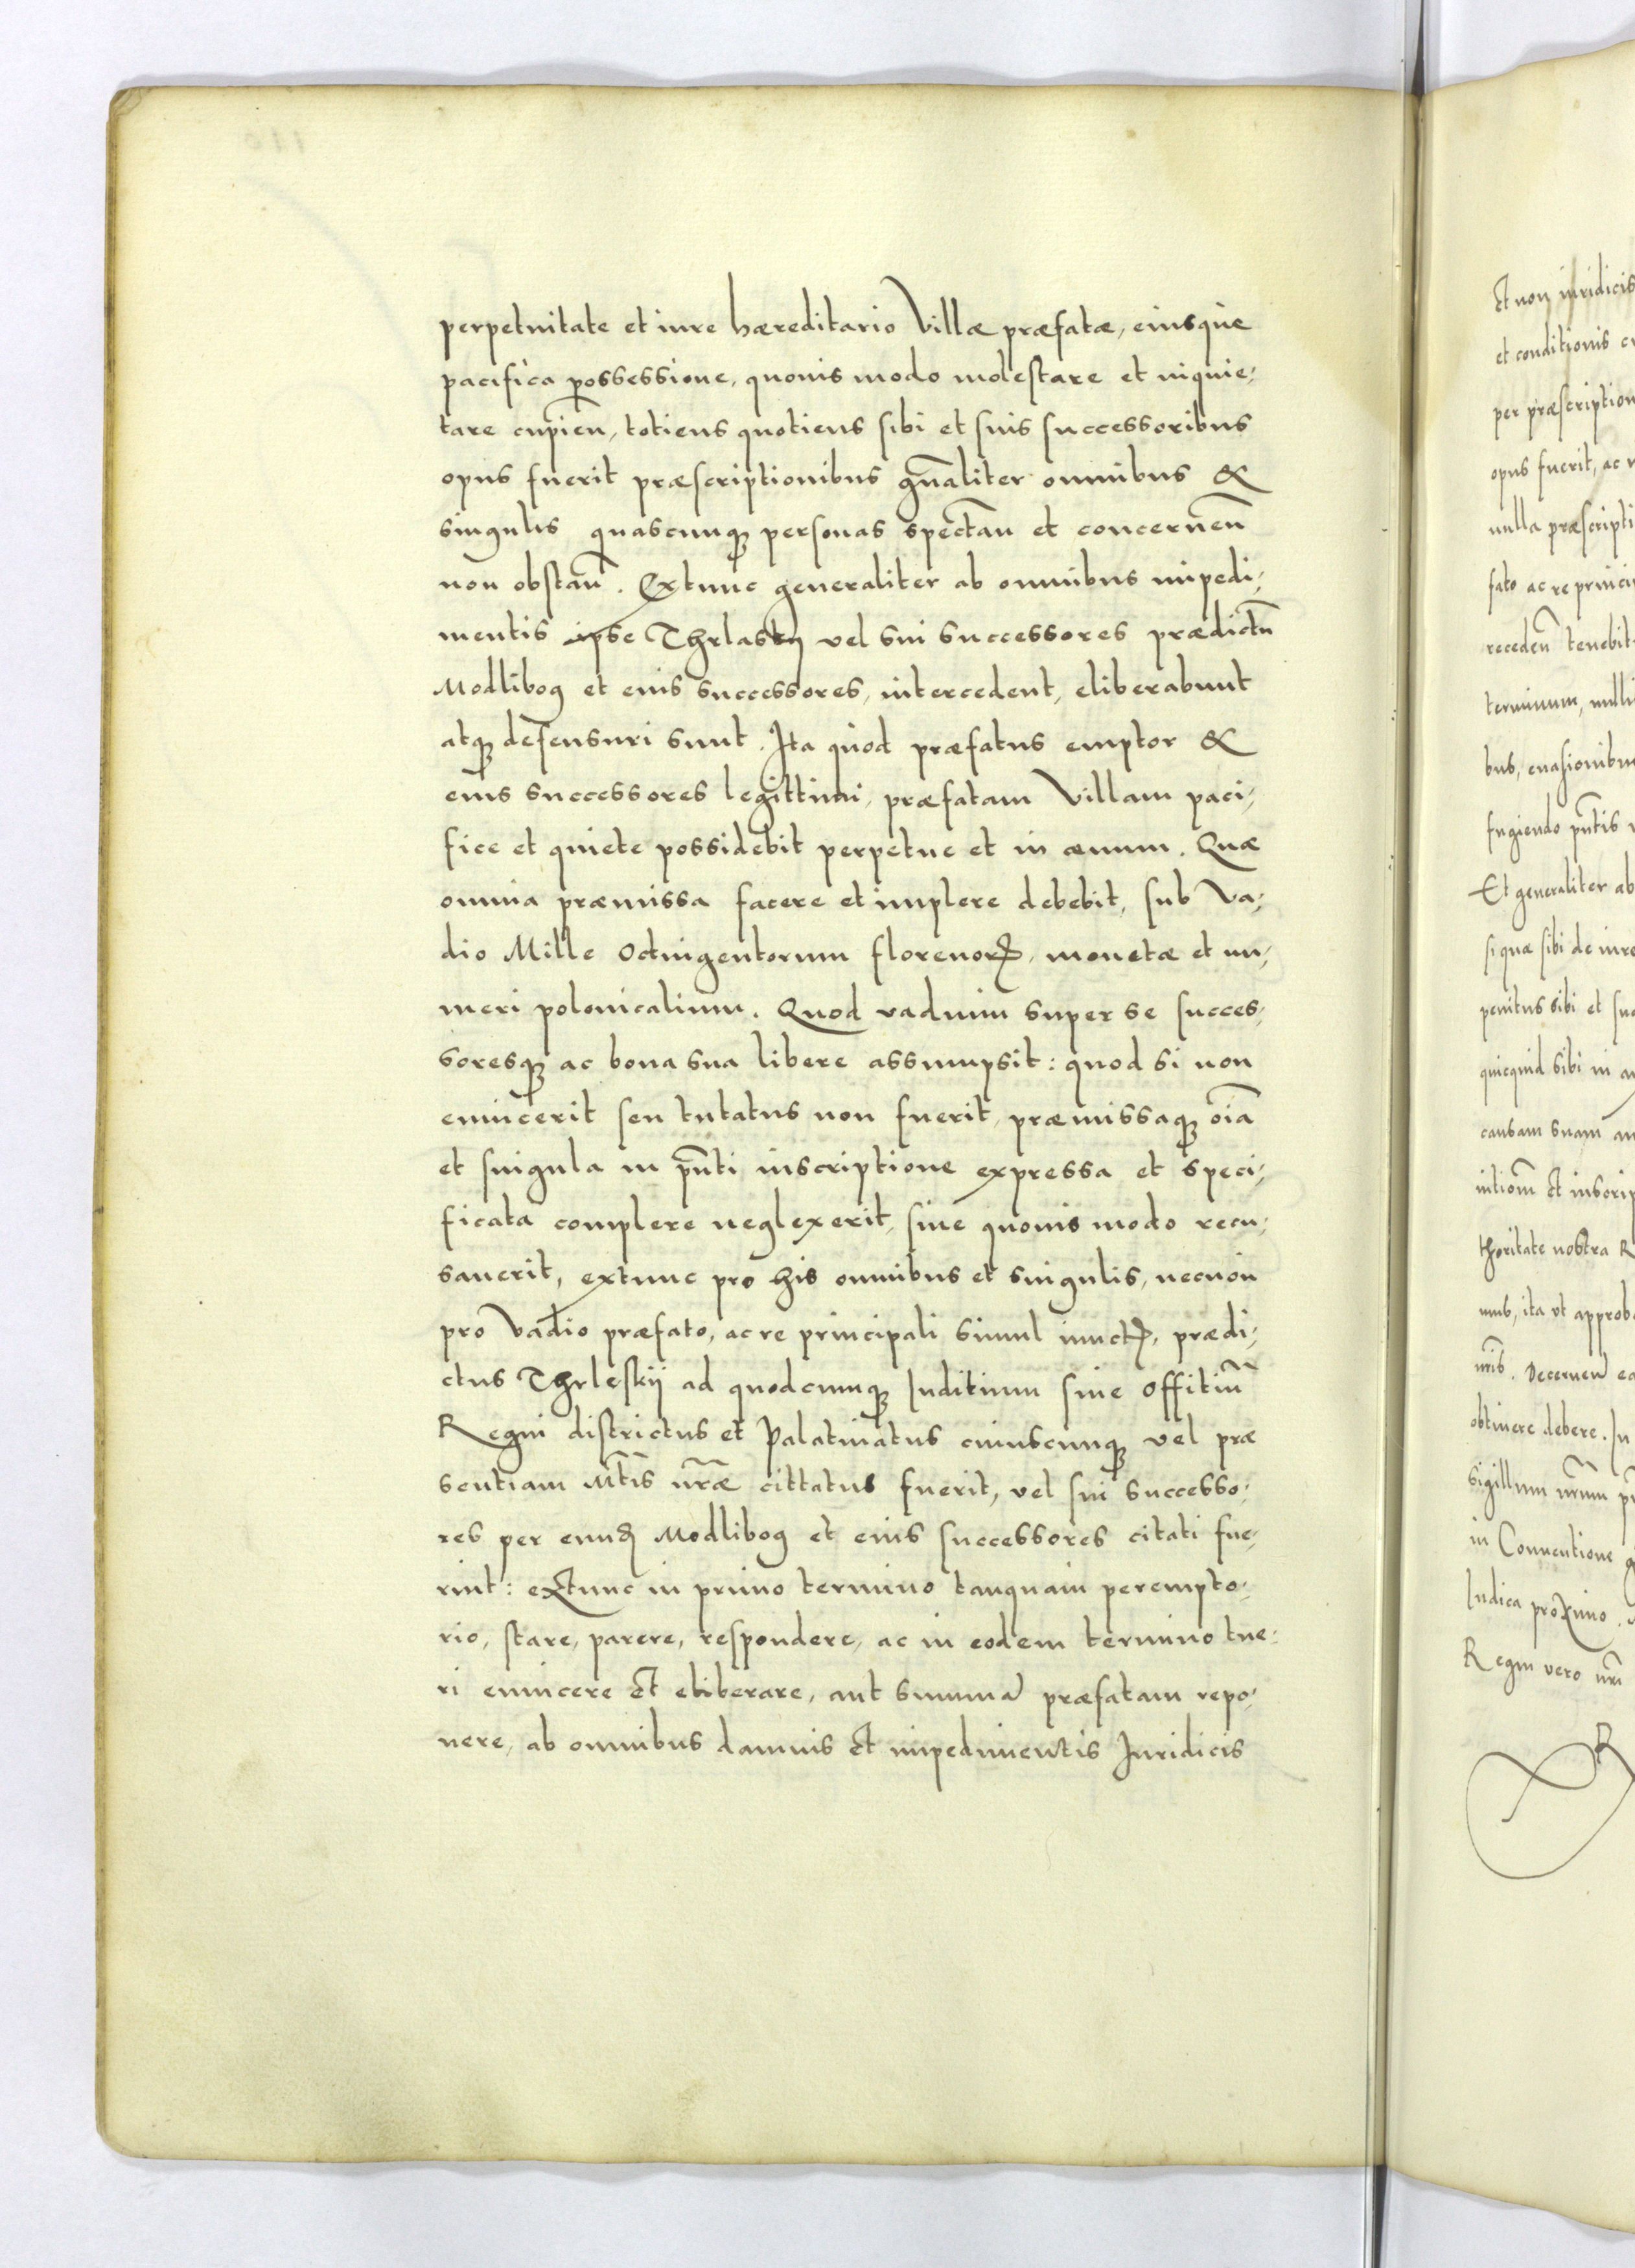 perpetuitate et iure hæreditario Villæ præfatæ, eiusque
pacifica possessione, quouis modo molestare et inquie,
tare cupien̄, totiens quotiens sibi et suis successoribus
opus fuerit præscriptionibus gn̄aliter omnibus &
singulis quascunq personas spectan̄ et concernen̄
non obstan̄. Extunc generaliter ab omnibus impedi,
mentis ipse Thrlasky vel sui successores prædictū
Modlibog et eius successores, intercedent, eliberabunt
atq defensuri sunt. Ita quod præfatus emptor &
eius successores legittimi, præfatam Villam paci,
fice et quiete possidebit perpetue et in æuum. Quæ
omnia præmissa facere et implere debebit, sub Va,
dio Mille Octingentorum florenorꝝ, monetæ et nu,
meri polonicalium. Quod vadium super se succes,
soresq ac bona sua libere assumpsit: quod si non
euincerit seu tutatus non fuerit, præmissaq oīa
et singula in pn̄ti inscriptione expressa et speci,
ficata complere neglexerit, siue quouis modo recu,
sauerit, extunc pro his omnibus et singulis, necnon
pro Vadio præfato, ac re principali simul iunctꝭ, prædi,
ctus Thrleskij ad quodcunq Iuditium siue offitiū
Regni districtus et Palatinatus cuiuscunq vel præ
sentiam Mt̄is nr̄æ cittatus fuerit, vel sui successo,
res per eund Modlibog et eius successores citati fue,
rint: extunc in primo termino tanquam perempto,
rio, stare, parere, respondere, ac in eodem termino tue,
ri euincere et eliberare, aut summā præfatam repo,
nere, ab omnibus damnis et impedimentis Iuridicis
Et non iuridicis
et conditionis
per præscription
opus fuerit, ac
nulla præscripti
fato ac re princi
receden̄ tenebit
terminum, nulli
bus, euasionibus
fugiendo pn̄tis
Et generaliter ab
si quæ sibi de iure
penitus sibi et
quicquid sibi in
causam suam
thoritate nostra
nus, ita vt approb
Decernen
obtinere debere. In
sigillum nr̄um
in Conuentione
Iudica proximo.
Regni vero nr̄i
R